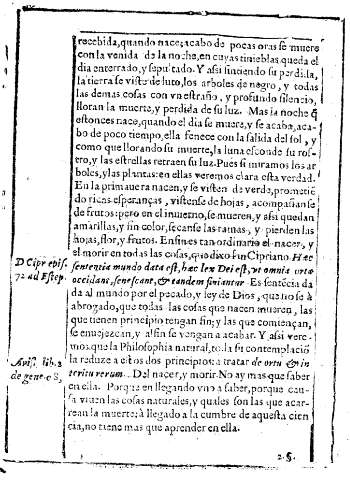 recebida, quando nace; acabo de pocas oras se muere
con la venida de la noche, en cuyas tinieblas queda el
dia enterrado, y sepultado. Y assi sintiendo su perdida,
la tierra se viste de luto, los arboles de negro, y todas
las demas cosas con vn estraño, y profundo silencio,
lloran la muerte, y perdida de su luz. Mas la noche q̃
estonces nace, quando el dia se muere, y se acaba, aca-
bo de poco tiempo, ella fenece con la salida del sol, y
como que llorando su muerte, la luna esconde su ros-
tro, y las estrellas retraen su luz. Pues si miramos los ar
boles, y las plantas: en ellas veremos clara esta verdad.
En la primauera nacen, y se visten de verde, prometiẽ
do ricas esperanças, vistense de hojas, acompañanse
de frutos: pero en el inuierno, se mueren, y assi quedan
amarillas, y sin color, secanse las ramas, y pierden las
hojas, flor, y frutos. En fin es tan ordinario el nacer, y
el morir en todas las cosas, que dixo san Cipriano. Hæc
sententia mundo data est, hæc lex Dei est, vt omnia orta
occidant, senescant, & tandem finiantur. Es sentẽcia da
da al mundo por el pecado, y ley de Dios, que no se à
abrogado, que todas las cosas que nacen mueren, las
que tienen principio tengan fin; y las que comiençan,
se enuejezcan, y al fin se vengan a acabar. Y assi vere-
mos que la Philosophia natural, toda su contemplació
la reduze a estos dos principios: a tratar de ortu & in
teritu rerum. Del nacer, y morir. No ay mas que saber
en ella. Porque en llegando vno a saber, porque cau-
sa viuen las cosas naturales, y quales son las que acar-
rean la muerte: à llegado a la cumbre de aquesta cien
cia, no tiene mas que aprender en ella.
D Cipr epis.
72 ad Estep.
Aris. lib. 2
de gene. c 8,
2. §.